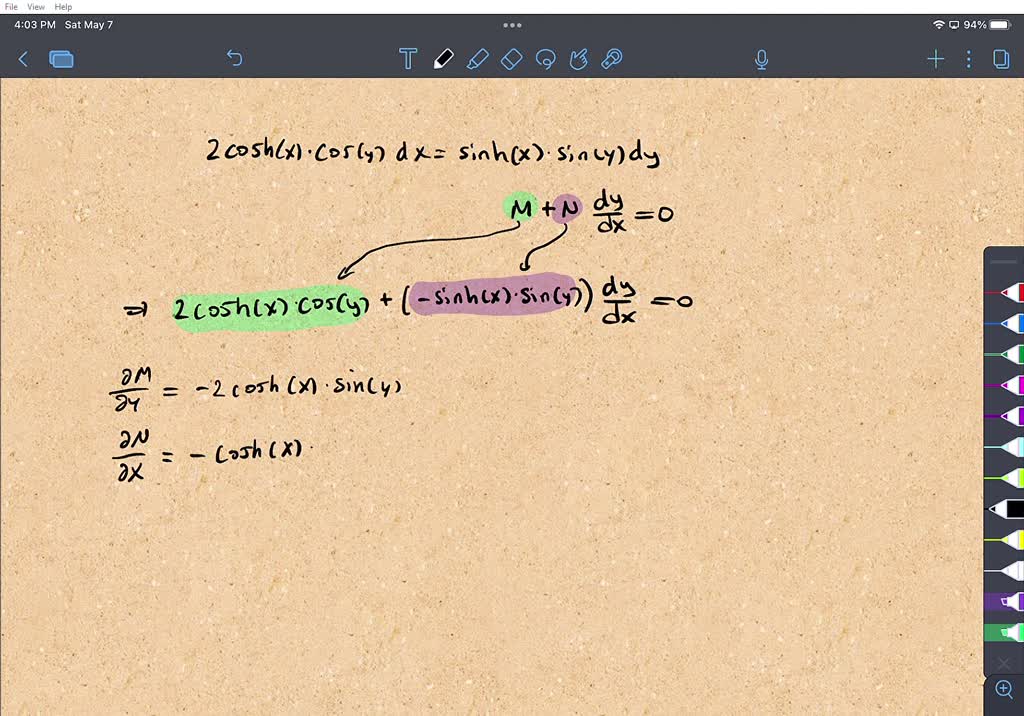 File View Help
4:03 PM Sat May 7 94%
2cosh(x)·cos(y) dx = sinh(x)·sin(y) dy
M + N dy/dx = 0
⇒ 2cosh(x)·cos(y) + (-sinh(x)·sin(y)) dy/dx = 0
∂M/∂y = -2cosh(x)·sin(y)
∂N/∂x = -cosh(x)·